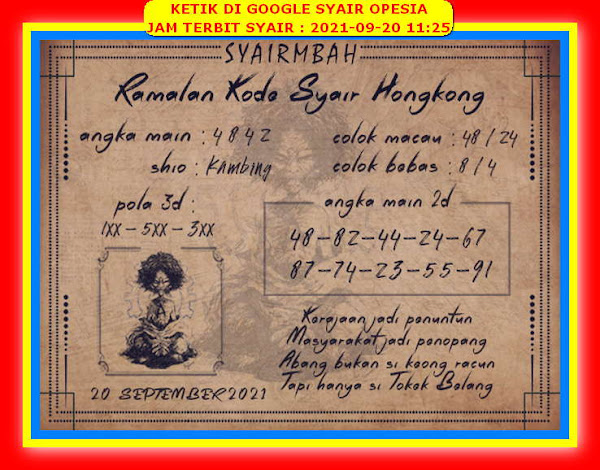 KETIK DI GOOGLE SYAIR OPESIA
JAM TERBIT SYAIR : 2021-09-20 11:25
SYAIRMBAH
Ramalan Kode Syair Hongkong
angka main : 4842
colok macau : 48 / 24
shio : Kambing
colok bebas : 8 / 4
pola 3d :
1XX - 5XX - 3XX
angka main 2d
48 - 82 - 44 - 24 - 67
87 - 74 - 23 - 55 - 91
A
Kerajaan jadi penuntun
Masyarakat jadi penopang
Abang bukan si keong racun
Tapi hanya si Tokek Belang
20 SEPTEMBER 2021